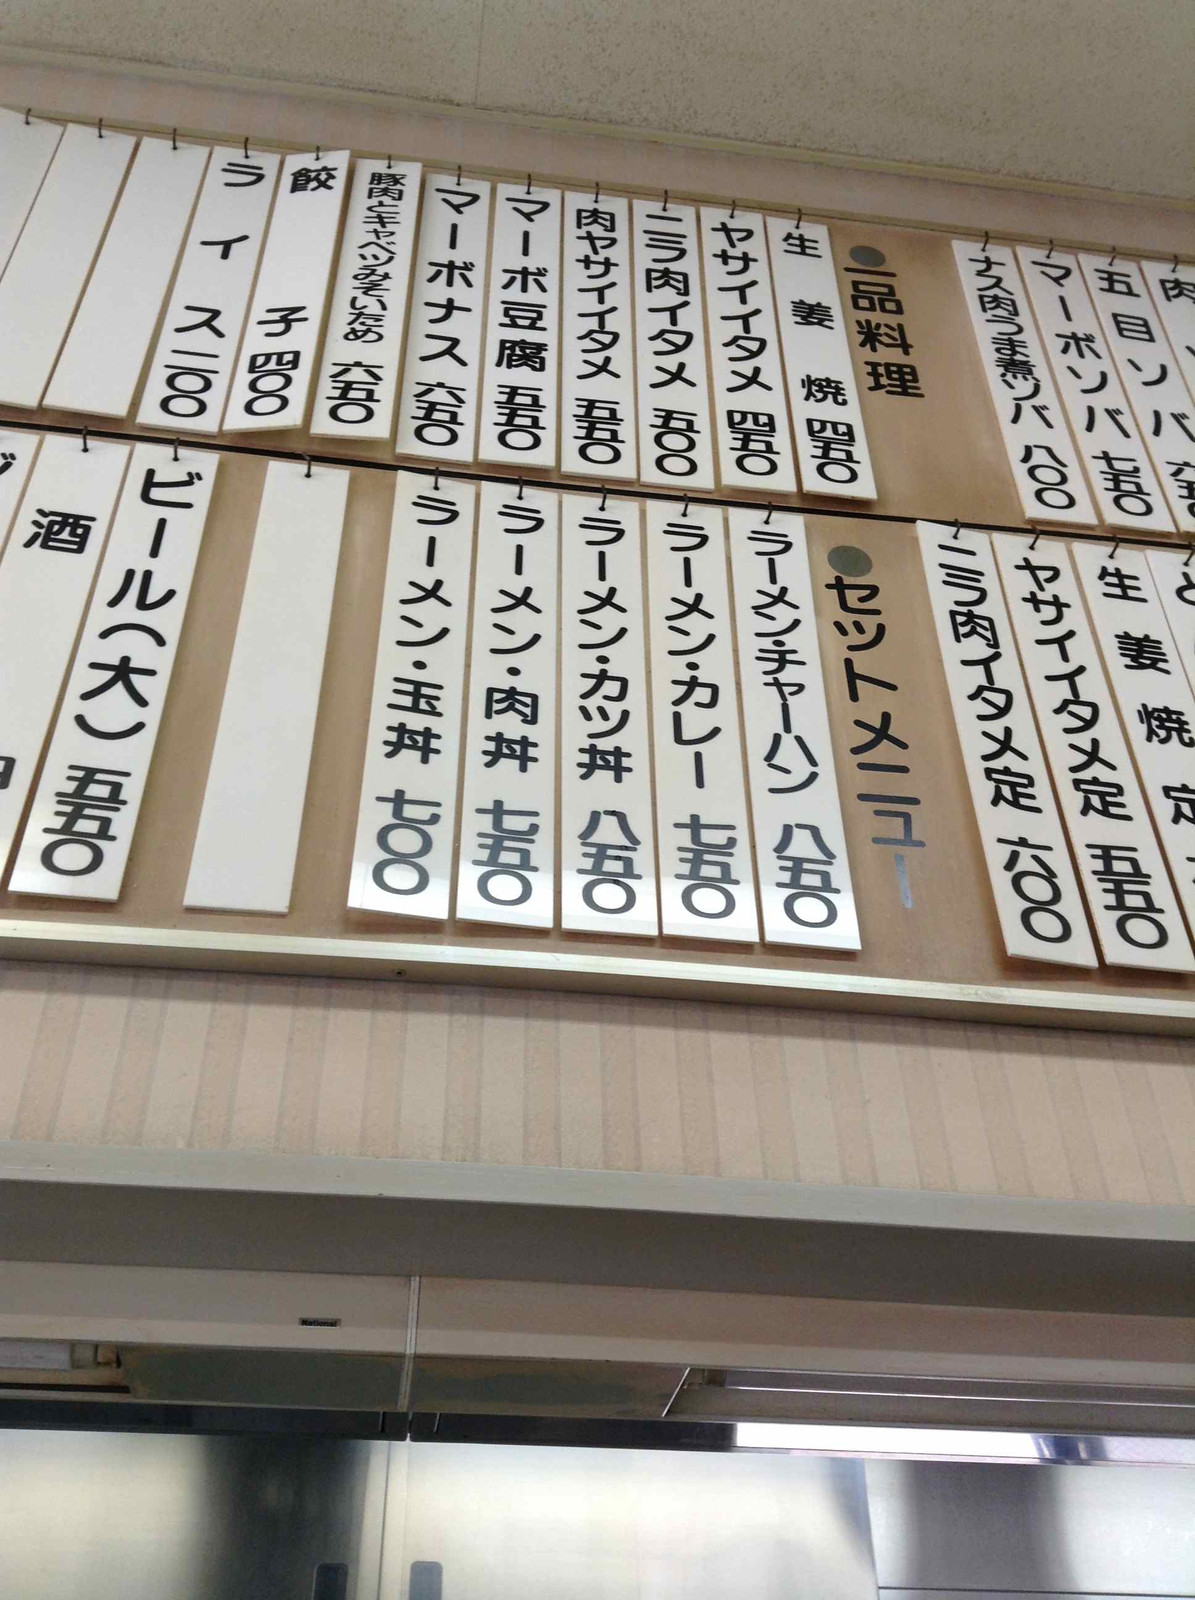 ナス肉うま煮ソバ 八〇〇
マーボソバ 七五〇
五目ソバ
肉
●一品料理
生姜焼 四五〇
ヤサイイタメ 四五〇
ニラ肉イタメ 五〇〇
肉ヤサイイタメ 五五〇
マーボ豆腐 五五〇
マーボナス 六五〇
豚肉とキャベツみそいため 六五〇
餃子 四〇〇
ライス 二〇〇
生姜焼定
ヤサイイタメ定 五五〇
ニラ肉イタメ定 六〇〇
●セットメニュー
ラーメン・チャーハン 八五〇
ラーメン・カレー 七五〇
ラーメン・カツ丼 八五〇
ラーメン・肉丼 七五〇
ラーメン・玉丼 七〇〇
ビール(大) 五五〇
酒
National